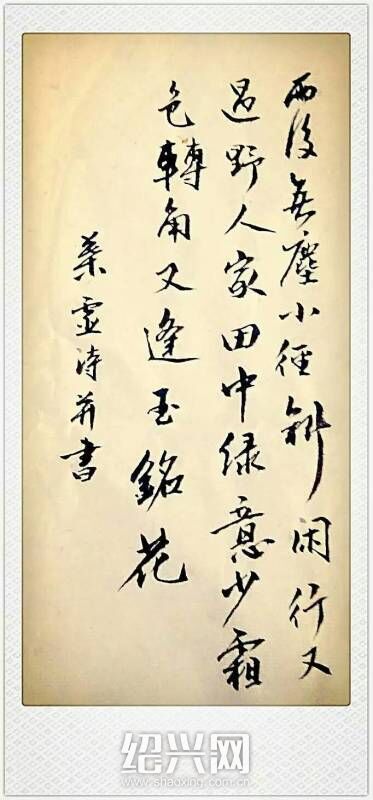 雨後無塵小徑斜閑行又
過野人家田中绿意少霜
色轉角又逢玉銘花
葉靈诗并書
绍兴网
www.shaoxing.com.cn